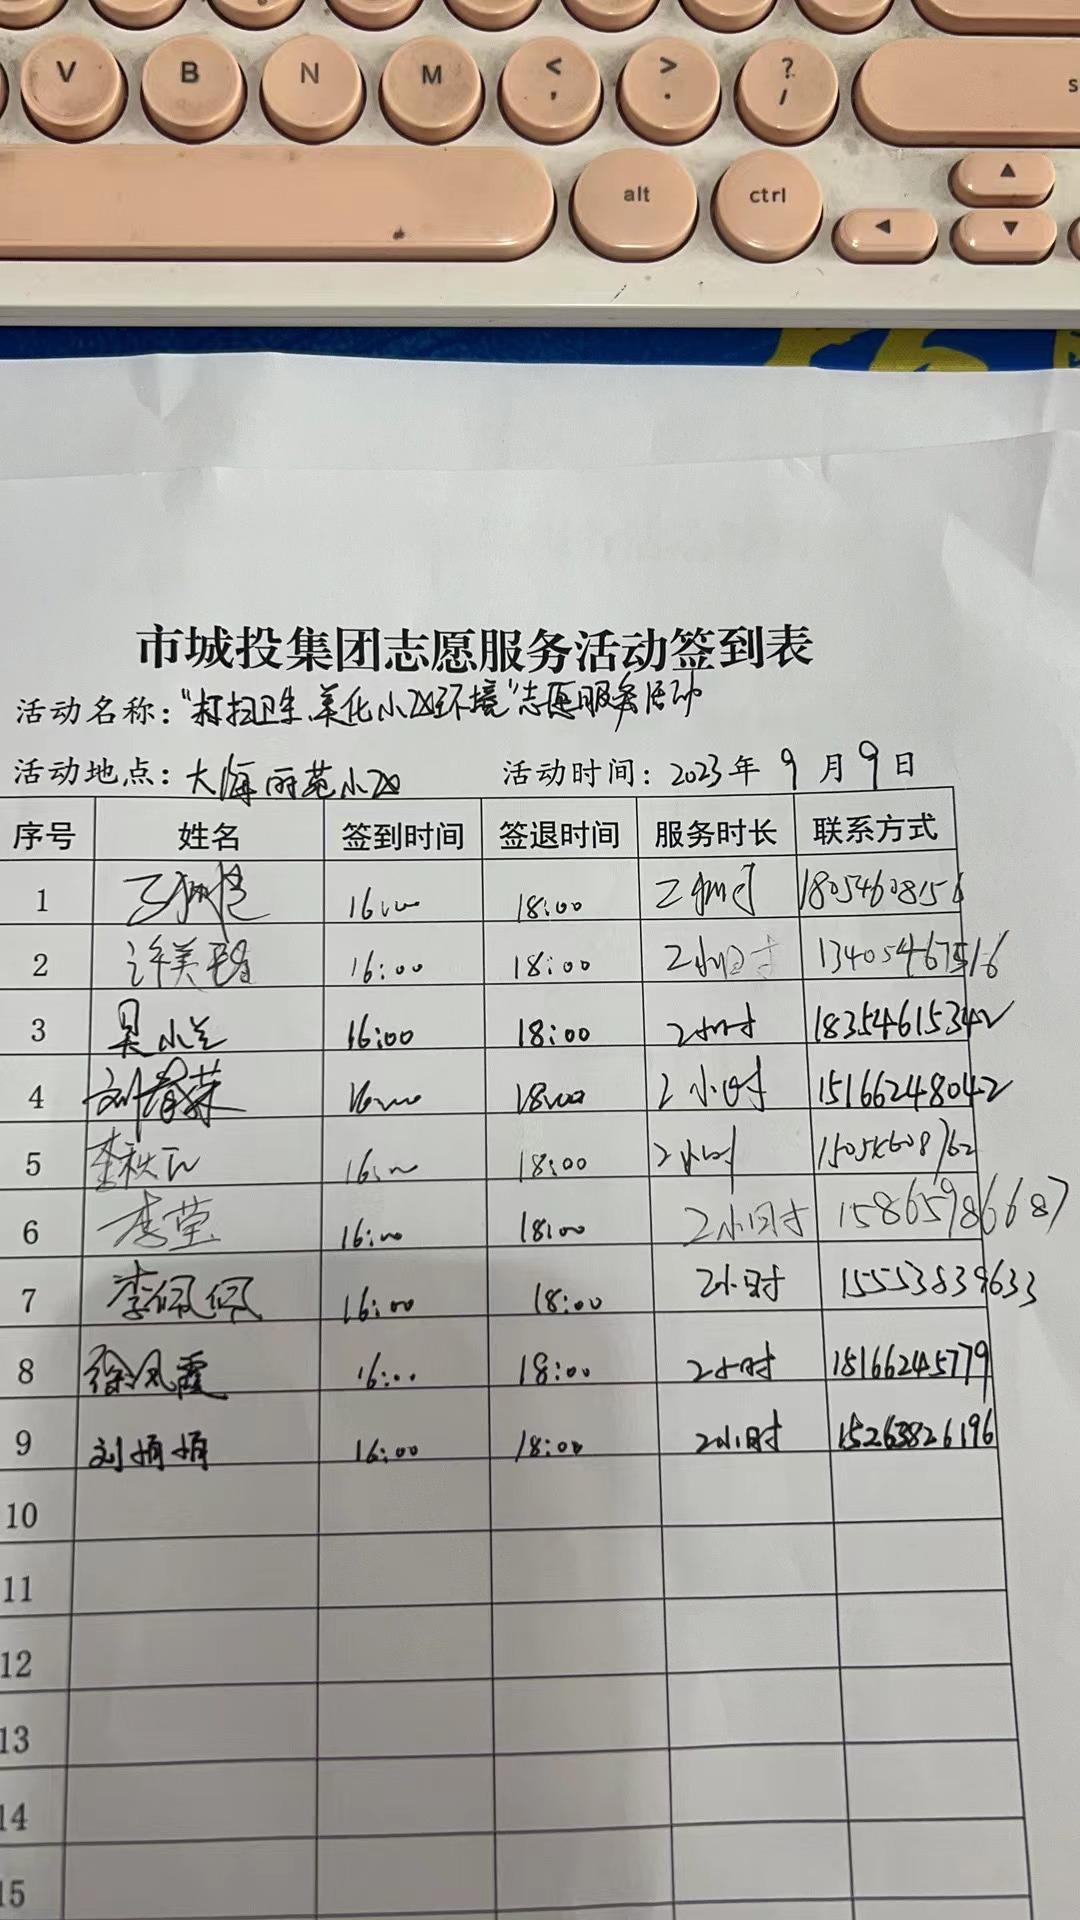 V B N M < , > . ? /
alt ctrl
市城投集团志愿服务活动签到表
活动名称："打扫卫生、美化小区环境"志愿服务活动
活动地点：大海丽苑小区 活动时间：2023年9月9日
序号 姓名 签到时间 签退时间 服务时长 联系方式
1 16:00 18:00 2小时 18054608156
2 许美 16:00 18:00 2小时 13405467516
3 吴小兰 16:00 18:00 2小时 18354615342
4 刘春荣 16:00 18:00 2小时 15166248042
5 李秋云 16:00 18:00 2小时 15054608762
6 李莹 16:00 18:00 2小时 15865986687
7 李佩佩 16:00 18:00 2小时 15553839633
8 徐凤霞 16:00 18:00 2小时 15166245779
9 刘娟娟 16:00 18:00 2小时 15263826196
10
11
12
13
14
15